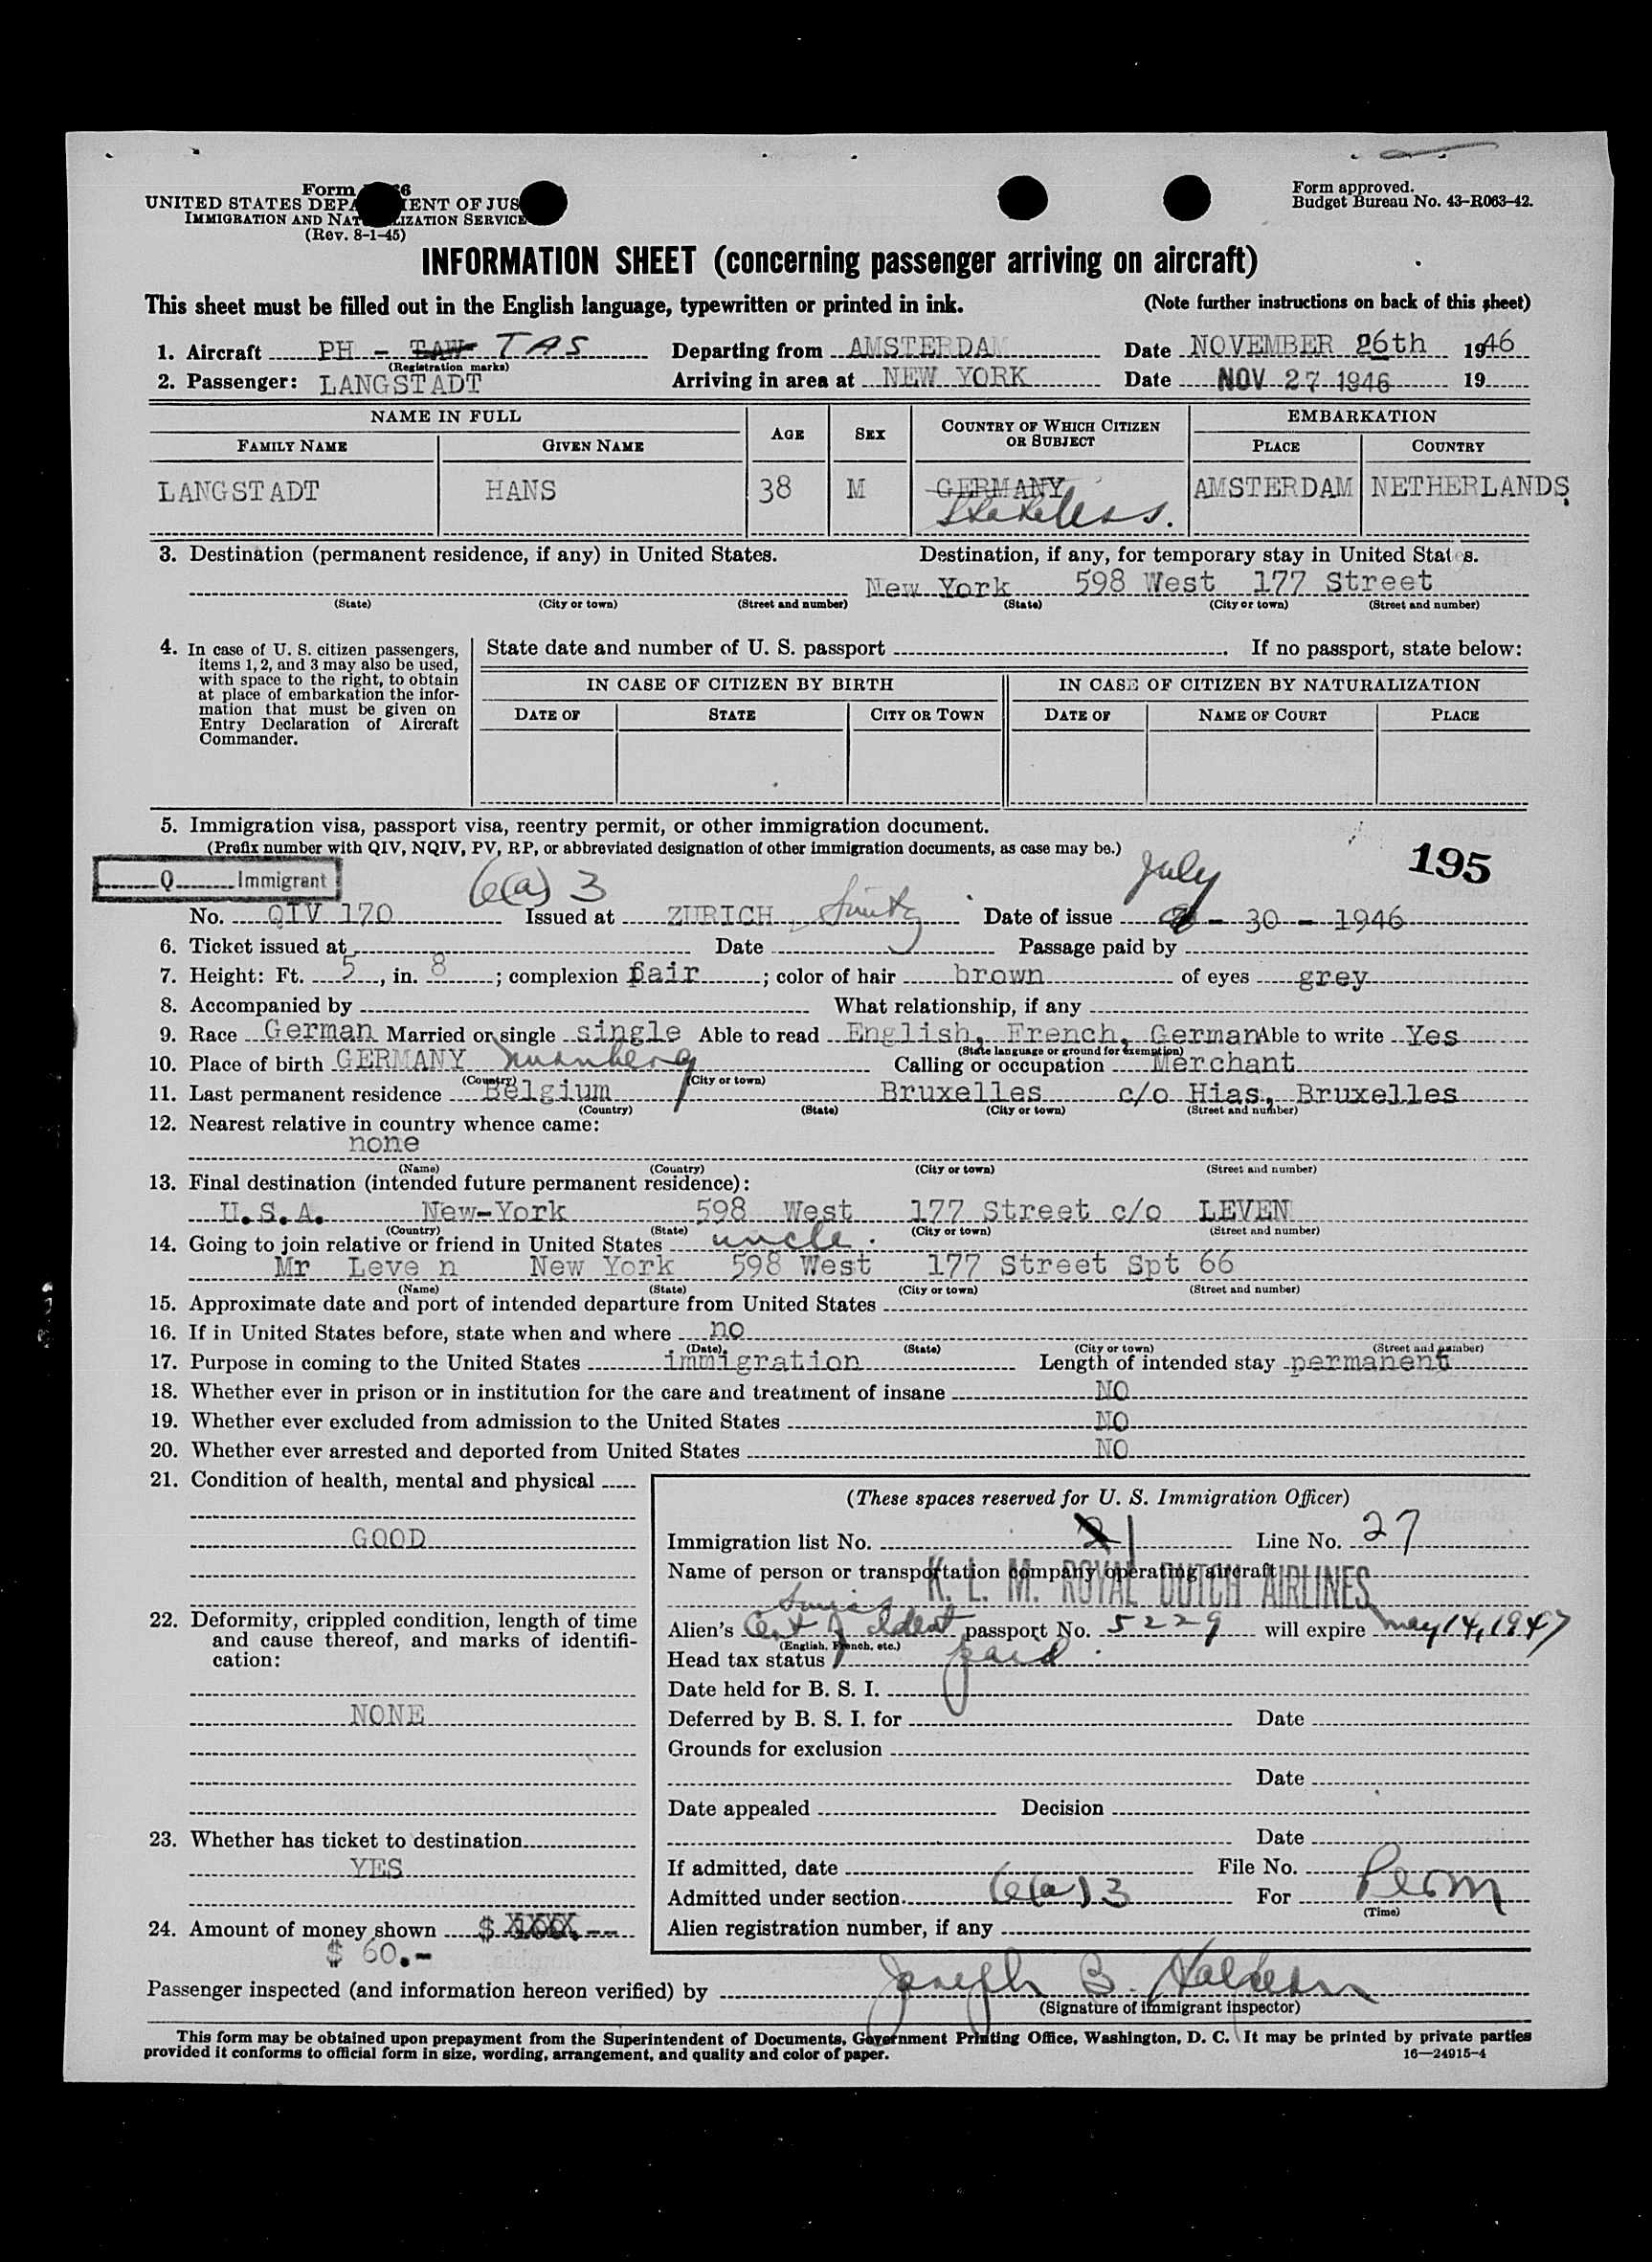 Form 6
UNITED STATES DEPA ENT OF JUS
IMMIGRATION AND NAT LIZATION SERVICE
(Rev. 8-1-45)
Form approved.
Budget Bureau No. 43-R063-42.
INFORMATION SHEET (concerning passenger arriving on aircraft)
This sheet must be filled out in the English language, typewritten or printed in ink. (Note further instructions on back of this sheet)
1. Aircraft PH - TAW TAS Departing from AMSTERDAM Date NOVEMBER 26th 1946
(Registration marks)
2. Passenger: LANGSTADT Arriving in area at NEW YORK Date NOV 27 1946 19
NAME IN FULL AGE SEX COUNTRY OF WHICH CITIZEN OR SUBJECT EMBARKATION
FAMILY NAME GIVEN NAME PLACE COUNTRY
LANGSTADT HANS 38 M GERMANY AMSTERDAM NETHERLANDS
Stateless.
3. Destination (permanent residence, if any) in United States. Destination, if any, for temporary stay in United States.
New York 598 West 177 Street
(State) (City or town) (Street and number) (State) (City or town) (Street and number)
4. In case of U. S. citizen passengers, items 1, 2, and 3 may also be used, with space to the right, to obtain at place of embarkation the information that must be given on Entry Declaration of Aircraft Commander.
State date and number of U. S. passport If no passport, state below:
IN CASE OF CITIZEN BY BIRTH IN CASE OF CITIZEN BY NATURALIZATION
DATE OF STATE CITY OR TOWN DATE OF NAME OF COURT PLACE
5. Immigration visa, passport visa, reentry permit, or other immigration document.
(Prefix number with QIV, NQIV, PV, RP, or abbreviated designation of other immigration documents, as case may be.)
195
Q Immigrant 6(a) 3 July
No. QIV 170 Issued at ZURICH, Date of issue - 30 - 1946
6. Ticket issued at Date Passage paid by
7. Height: Ft. 5, in. 8; complexion fair; color of hair brown of eyes grey
8. Accompanied by What relationship, if any
9. Race German Married or single single Able to read English, French, German Able to write Yes
(State language or ground for exemption)
10. Place of birth GERMANY Nuremberg Calling or occupation Merchant
(Country) (City or town)
11. Last permanent residence Belgium Bruxelles c/o Hias, Bruxelles
(Country) (State) (City or town) (Street and number)
12. Nearest relative in country whence came:
none
(Name) (Country) (City or town) (Street and number)
13. Final destination (intended future permanent residence):
U.S.A. New-York 598 West 177 Street c/o LEVEN
(Country) (State) (City or town) (Street and number)
14. Going to join relative or friend in United States uncle.
Mr Leve n New York 598 West 177 Street Spt 66
(Name) (State) (City or town) (Street and number)
15. Approximate date and port of intended departure from United States
16. If in United States before, state when and where no
(Date) (State) (City or town) (Street and number)
17. Purpose in coming to the United States immigration Length of intended stay permanent
18. Whether ever in prison or in institution for the care and treatment of insane NO
19. Whether ever excluded from admission to the United States NO
20. Whether ever arrested and deported from United States NO
21. Condition of health, mental and physical
GOOD
22. Deformity, crippled condition, length of time and cause thereof, and marks of identification:
NONE
23. Whether has ticket to destination
YES
24. Amount of money shown $ XXXX --
$ 60.-
(These spaces reserved for U. S. Immigration Officer)
Immigration list No. 1 Line No. 27
Name of person or transportation company operating aircraft
K. L. M. ROYAL DUTCH AIRLINES
Swiss
Alien's Cert of Ident passport No. 5229 will expire May 14, 1947
(English, French, etc.)
Head tax status paid
Date held for B. S. I.
Deferred by B. S. I. for Date
Grounds for exclusion
Date
Date appealed Decision
Date
If admitted, date File No.
Admitted under section 6(a) 3 For Perm
(Time)
Alien registration number, if any
Passenger inspected (and information hereon verified) by Joseph B.
(Signature of immigrant inspector)
This form may be obtained upon prepayment from the Superintendent of Documents, Government Printing Office, Washington, D. C. It may be printed by private parties
provided it conforms to official form in size, wording, arrangement, and quality and color of paper. 16—24915-4